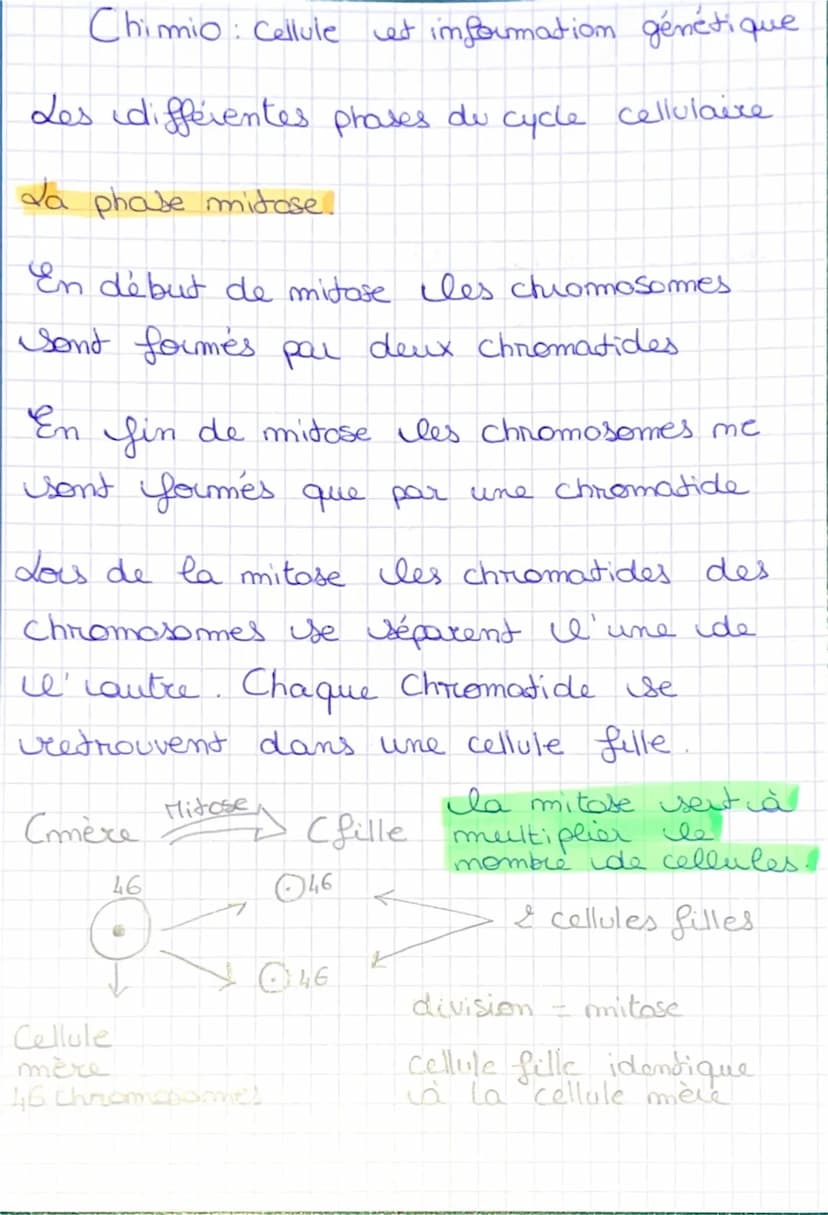 Chimio : Cellule et information génétique
Les différentes phases du cycle cellulaire
La phase mitose.
En début de mitose les chromosomes
sont formés par deux chromatides
En fin de mitose les chromosomes ne
sont formés que par une chromatide
Lors de la mitose les chromatides des
chromosomes se séparent l'une de
l'autre. Chaque Chromatide se
retrouvent dans une cellule fille.
Cmère Mitose Cfille
la mitose sert à
multiplier le
nombre de cellules.
46
46
2 cellules filles
46
division = mitose
Cellule
mère
46 chromosomes
cellule fille identique
à la cellule mère